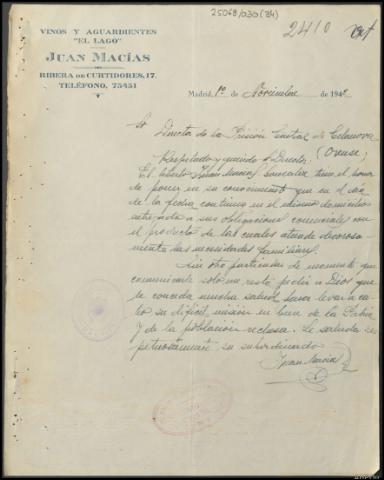 25068/030 (34)
2410
VINOS Y AGUARDIENTES
"EL LAGO"
JUAN MACÍAS
RIBERA DE CURTIDORES, 17.
TELÉFONO, 75451
Madrid, 1º de Noviembre de 194
Sr Director de la Prisión Central de Celanova
(Orense)
Respetado y querido Sr Director:
El liberto Juan Macías González tiene el honor
de poner en su conocimiento que en el día
de la fecha continua en el mismo domicilio
a sus obligaciones comerciales con
el producto de las cuales atiende decorosa-
menta las necesidades familiares.
Sin otro particular de momento que
comunicarle solo me resta pedir a Dios que
le conceda mucha salud para llevar a ca-
bo su difícil misión en bien de la Patria
y de la población reclusa. Le saluda res-
petuosamente su subordinado
Juan Macías